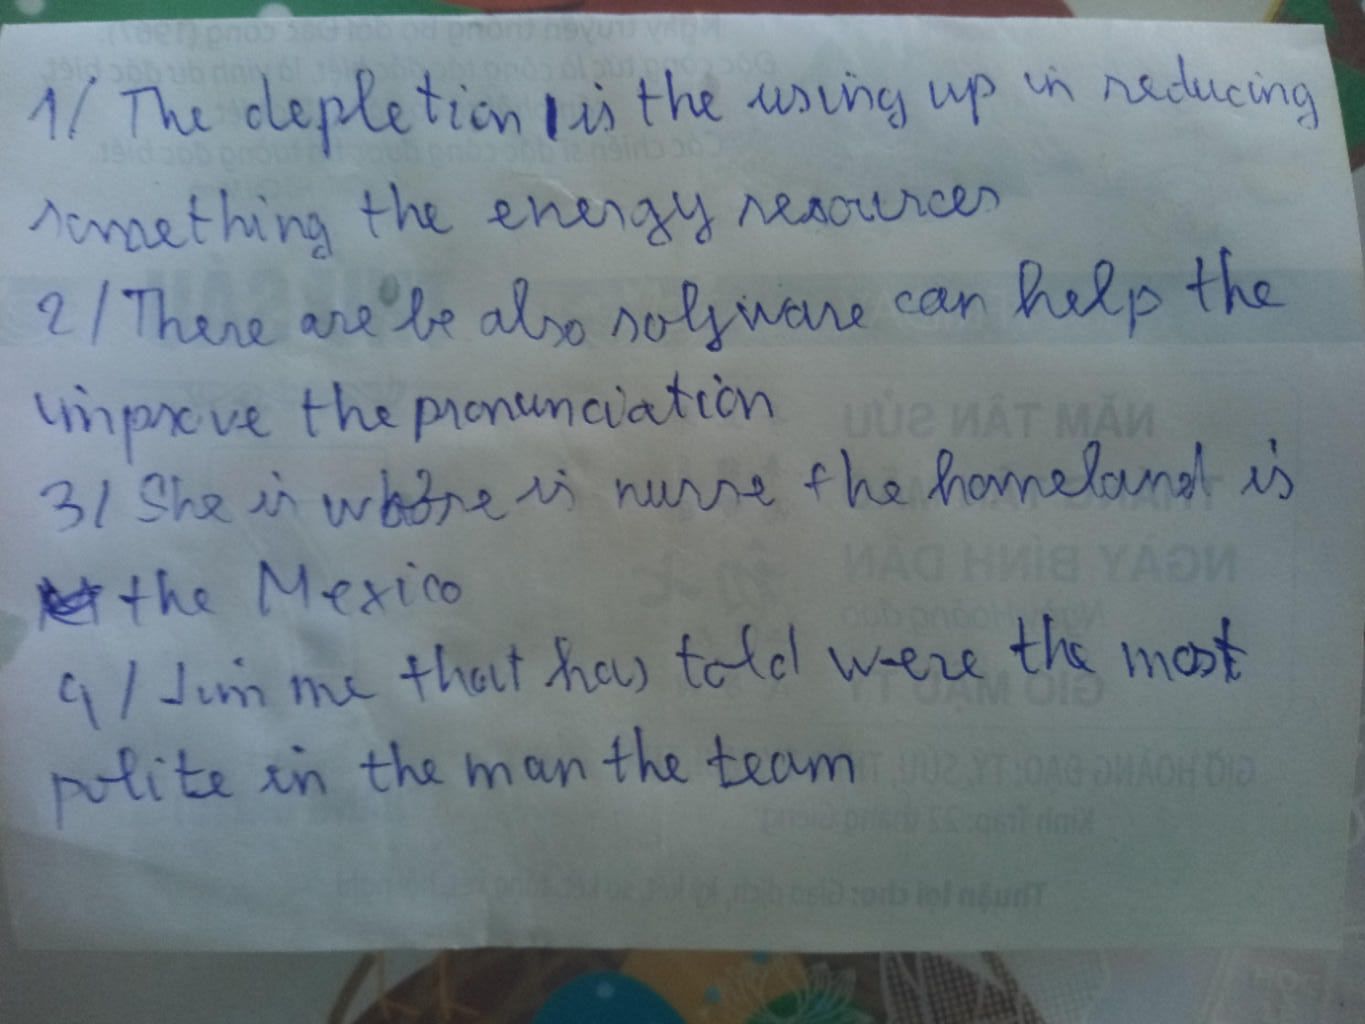 1/ The depletion is the using up in reducing
something the energy resources
2/ There are be also software can help the
improve the pronunciation
3/ She is where is nurse the homeland is
the Mexico
4/ Jim me that has told were the most
polite in the man the team